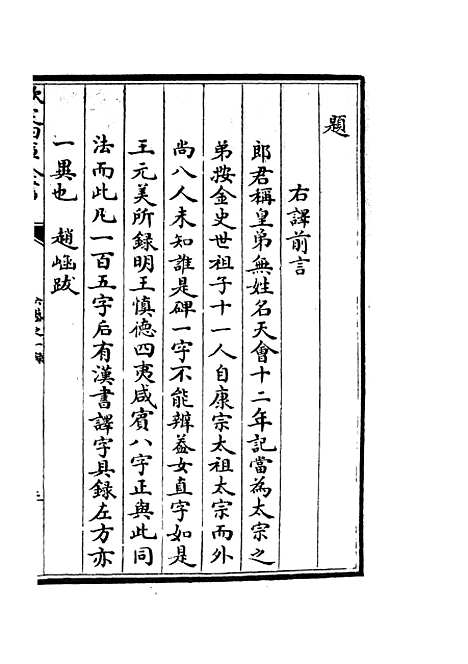 題
右譯前言
郎君稱皇弟無姓名天會十二年記當為太宗之
弟按金史世祖子十一人自康宗太祖太宗而外
尚八人未知誰是碑一字不能辨葢女直字如是
王元美所録明王慎德四夷咸賓八字正與此同
法而此凡一百五字后有漢書譯字具録左方亦
一異也　趙崡跋